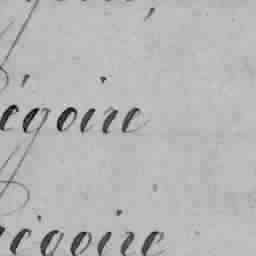 égoire
régoire